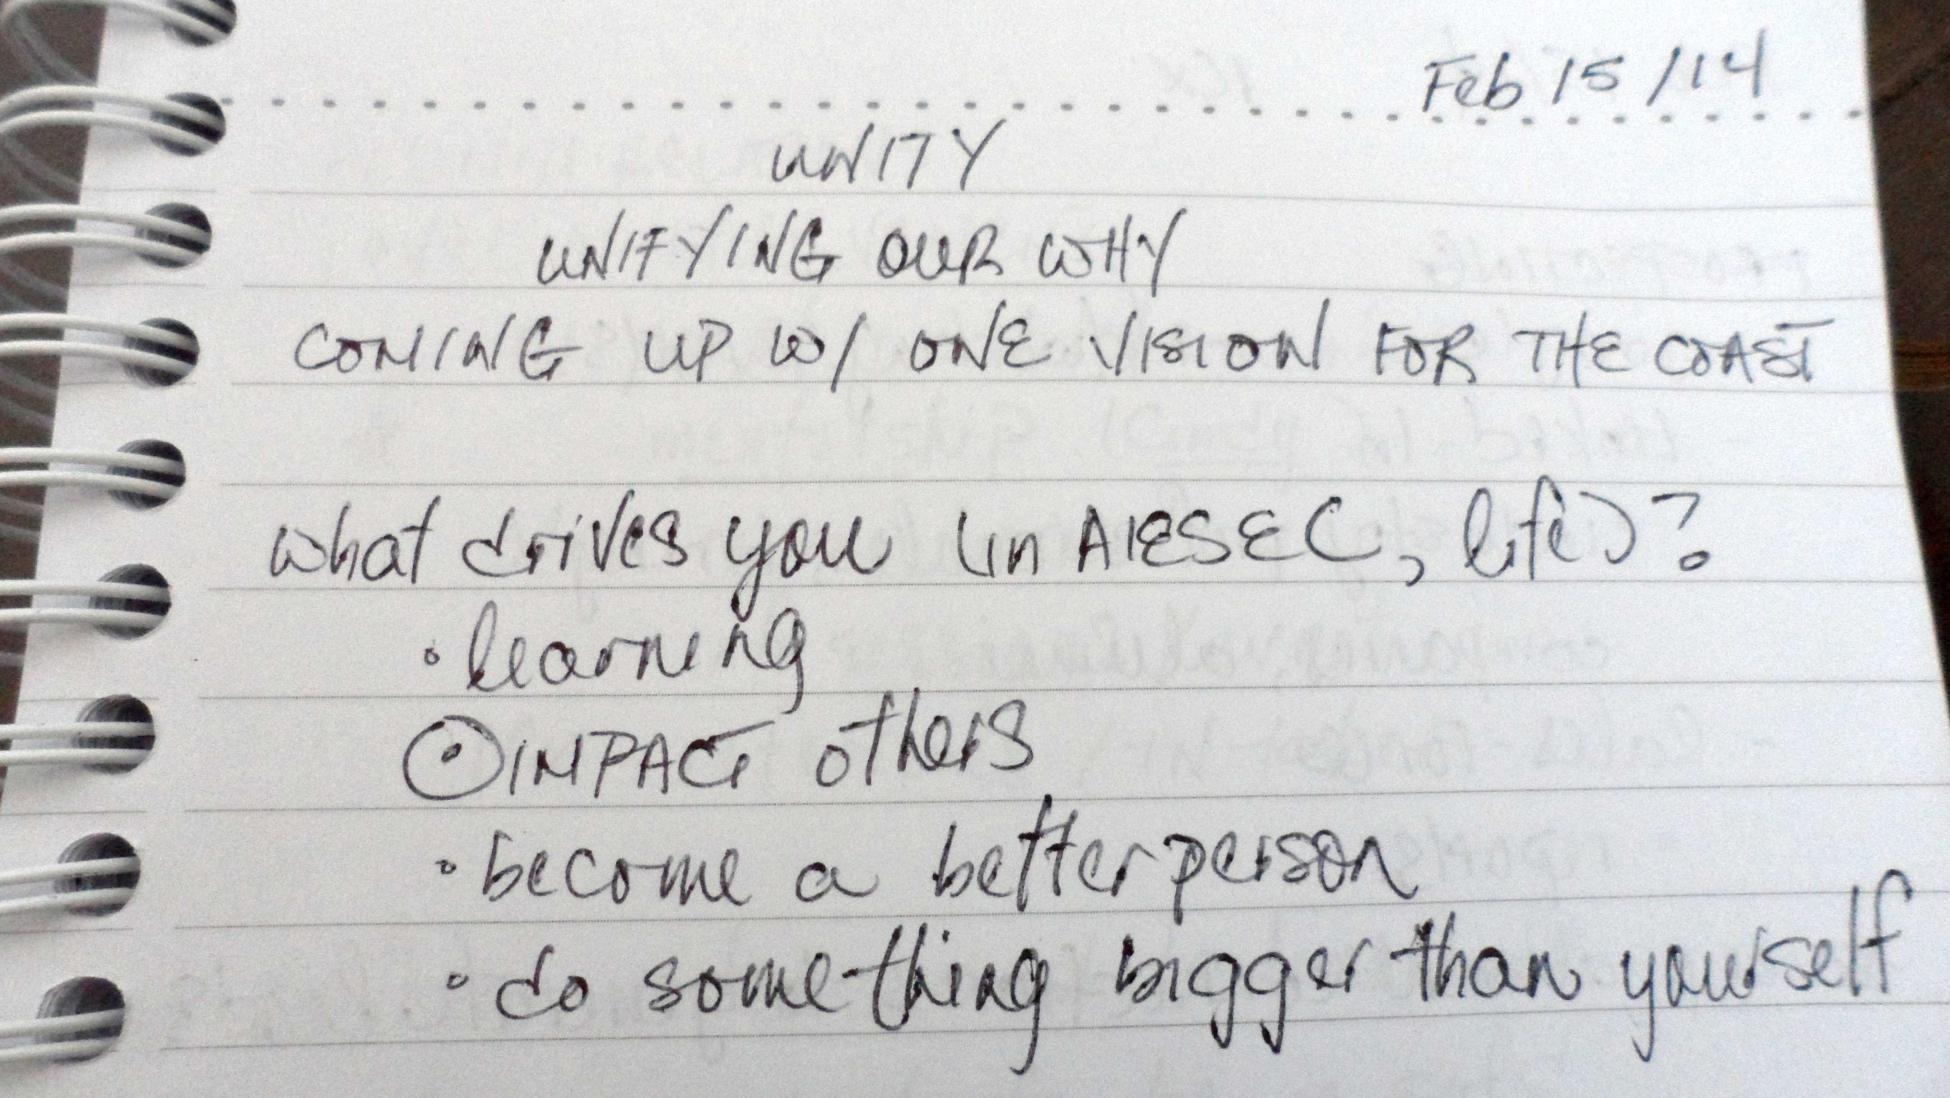 Feb 15/14
UNITY
UNIFYING OUR WHY
COMING UP W/ ONE VISION FOR THE COAST
What drives you (in AIESEC, life)?
• learning
⊙ IMPACT others
• become a better person
• do something bigger than yourself